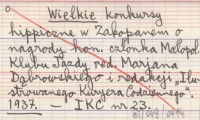 Wielkie konkursy
hippiczne w Zakopanem o
nagrody hon. członka Małopol.
Klubu Jazdy red. Marjana
Dąbrowskiego i redakcji „Ilu-
strowanego Kuryera Codziennego".
1937. — IKC nr. 23.